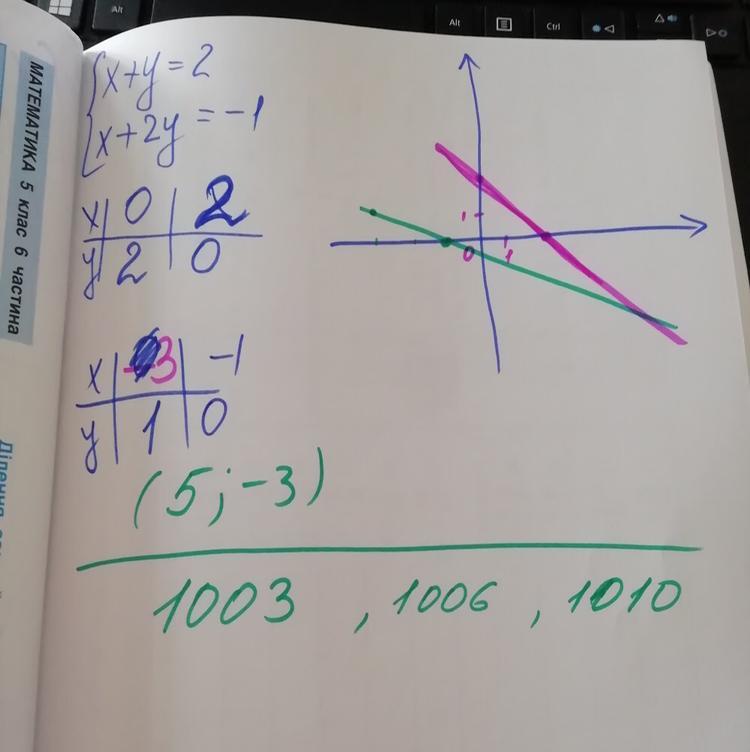 Alt
Ctrl
Alt
МАТЕМАТИКА 5 клас 6 частина
x+y=2
x+2y=-1
x 0 2
y 2 0
x -3 -1
y 1 0
1
0 1
(5;-3)
1003, 1006, 1010